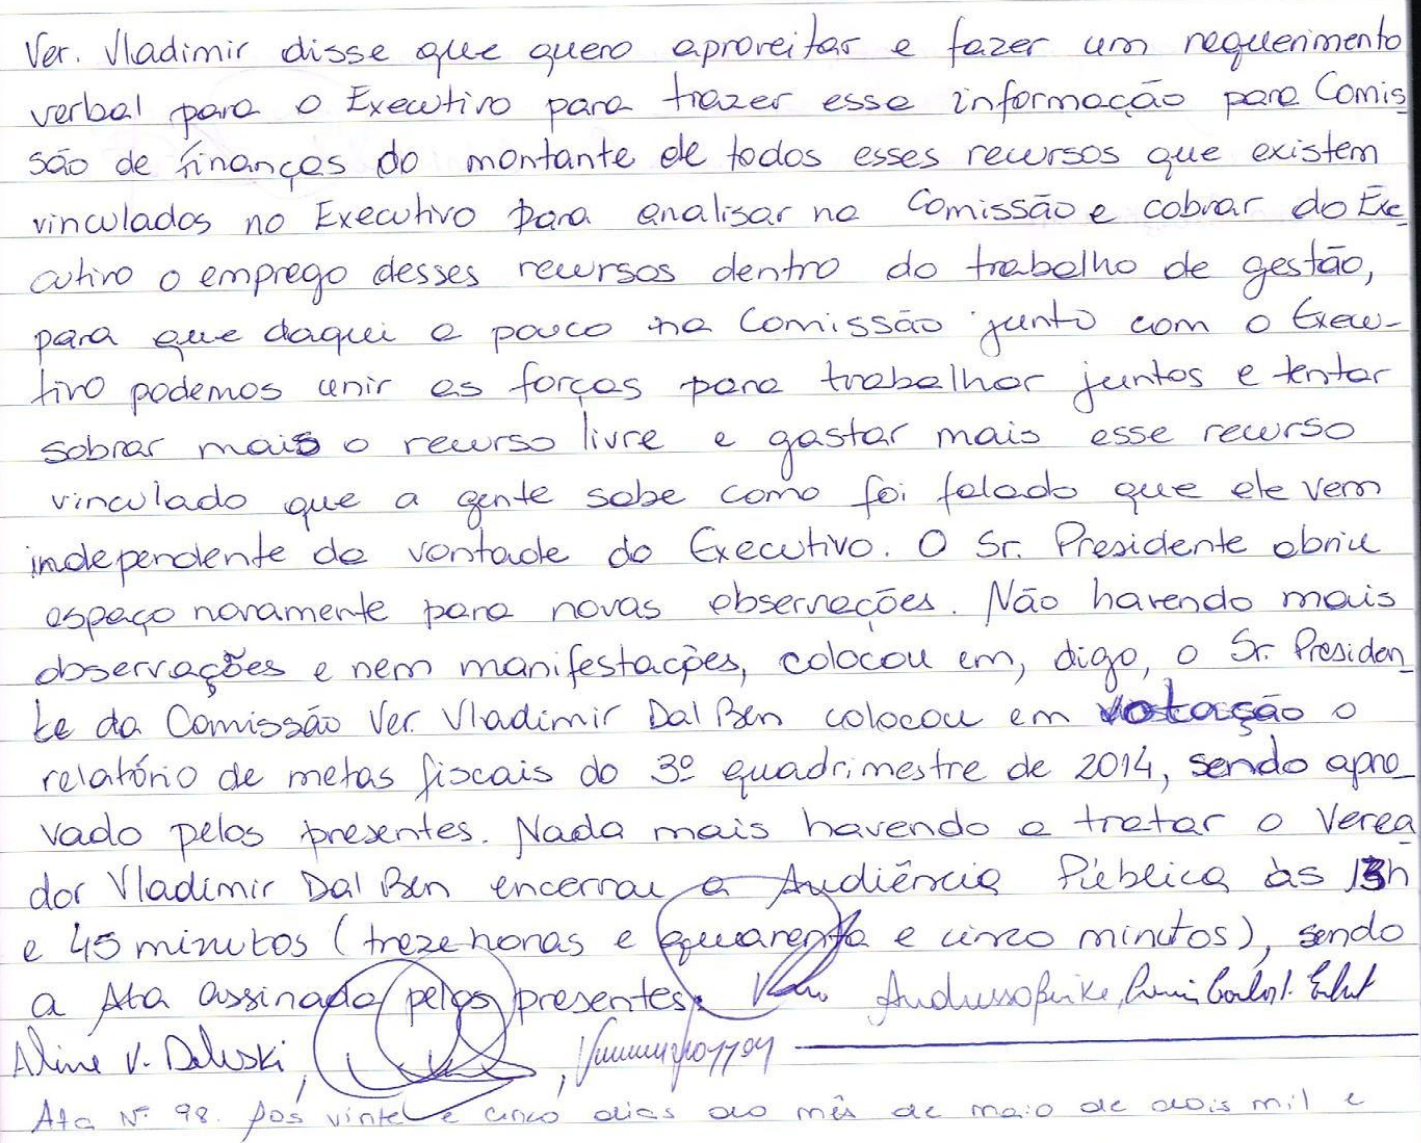 Ver. Vladimir disse que quero aproveitar e fazer um requerimento
verbal para o Executivo para trazer essa informação para Comis
são de finanças do montante de todos esses recursos que existem
vinculados no Executivo para analisar na Comissão e cobrar do Exe
cutivo o emprego desses recursos dentro do trabalho de gestão,
para que daqui a pouco na Comissão junto com o Execu-
tivo podemos unir as forças para trabalhar juntos e tentar
sobrar mais o recurso livre e gastar mais esse recurso
vinculado que a gente sabe como foi falado que ele vem
independente da vontade do Executivo. O Sr. Presidente abriu
espaço novamente para novas observações. Não havendo mais
observações e nem manifestações, colocou em, digo, o Sr. Presiden
te da Comissão Ver. Vladimir Dal Ben colocou em votação o
relatório de metas fiscais do 3º quadrimestre de 2014, sendo apro
vado pelos presentes. Nada mais havendo a tratar o Verea
dor Vladimir Dal Ben encerrou a Audiência Pública às 13h
e 45 minutos (treze horas e quarenta e cinco minutos), sendo
a Ata assinada pelos presentes.
Aline V. Daluski,
Ata Nº 98. Aos vinte e cinco dias do mês de maio de dois mil e